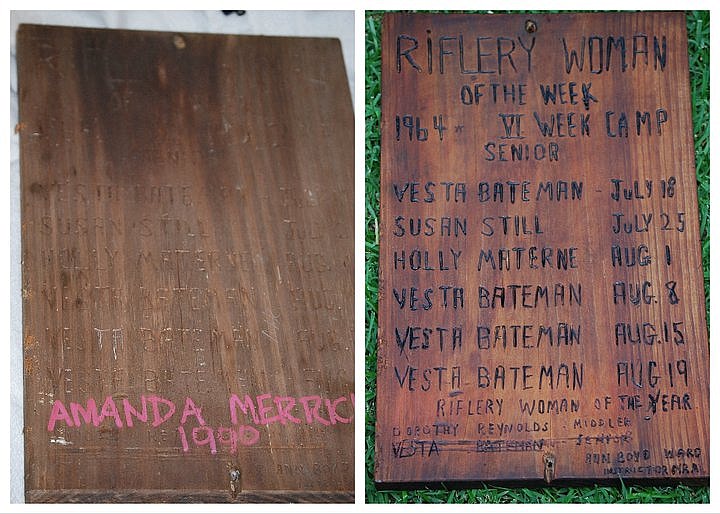 VESTA BATEMAN
SUSAN STILL
HOLLY MATERNE
VESTA BATEMAN
VESTA BATEMAN
VESTA BATEMAN
AMANDA MERRICK
1990
ANN BOYD
RIFLERY WOMAN
OF THE WEEK
1964 VI WEEK CAMP
SENIOR
VESTA BATEMAN - JULY 18
SUSAN STILL JULY 25
HOLLY MATERNE AUG. 1
VESTA BATEMAN AUG. 8
VESTA BATEMAN AUG. 15
VESTA BATEMAN AUG 19
RIFLERY WOMAN OF THE YEAR
DOROTHY REYNOLDS MIDDLER
VESTA BATEMAN SENIOR
ANN BOYD WARD
INSTRUCTOR N.R.A.